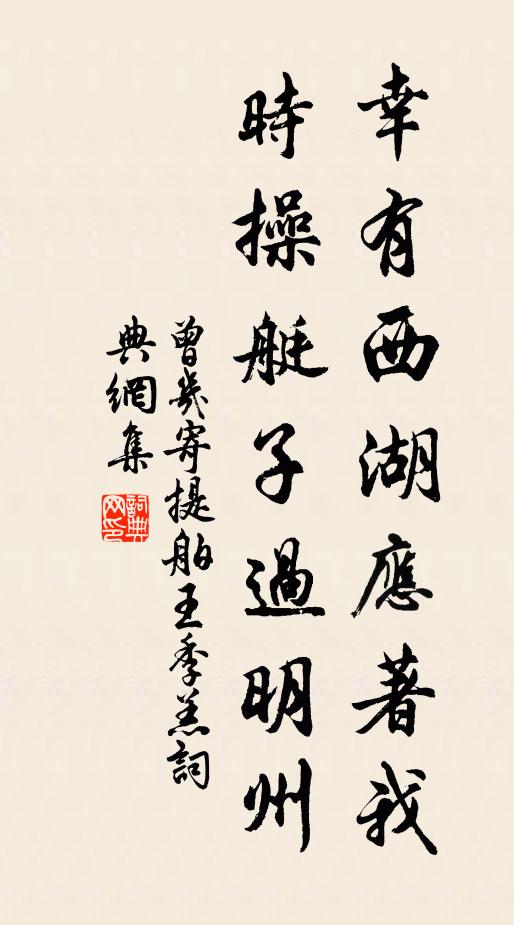 幸有西湖應著我
時操艇子過明州
曾幾寄提舶王季羔詞
典網集
詞典網印